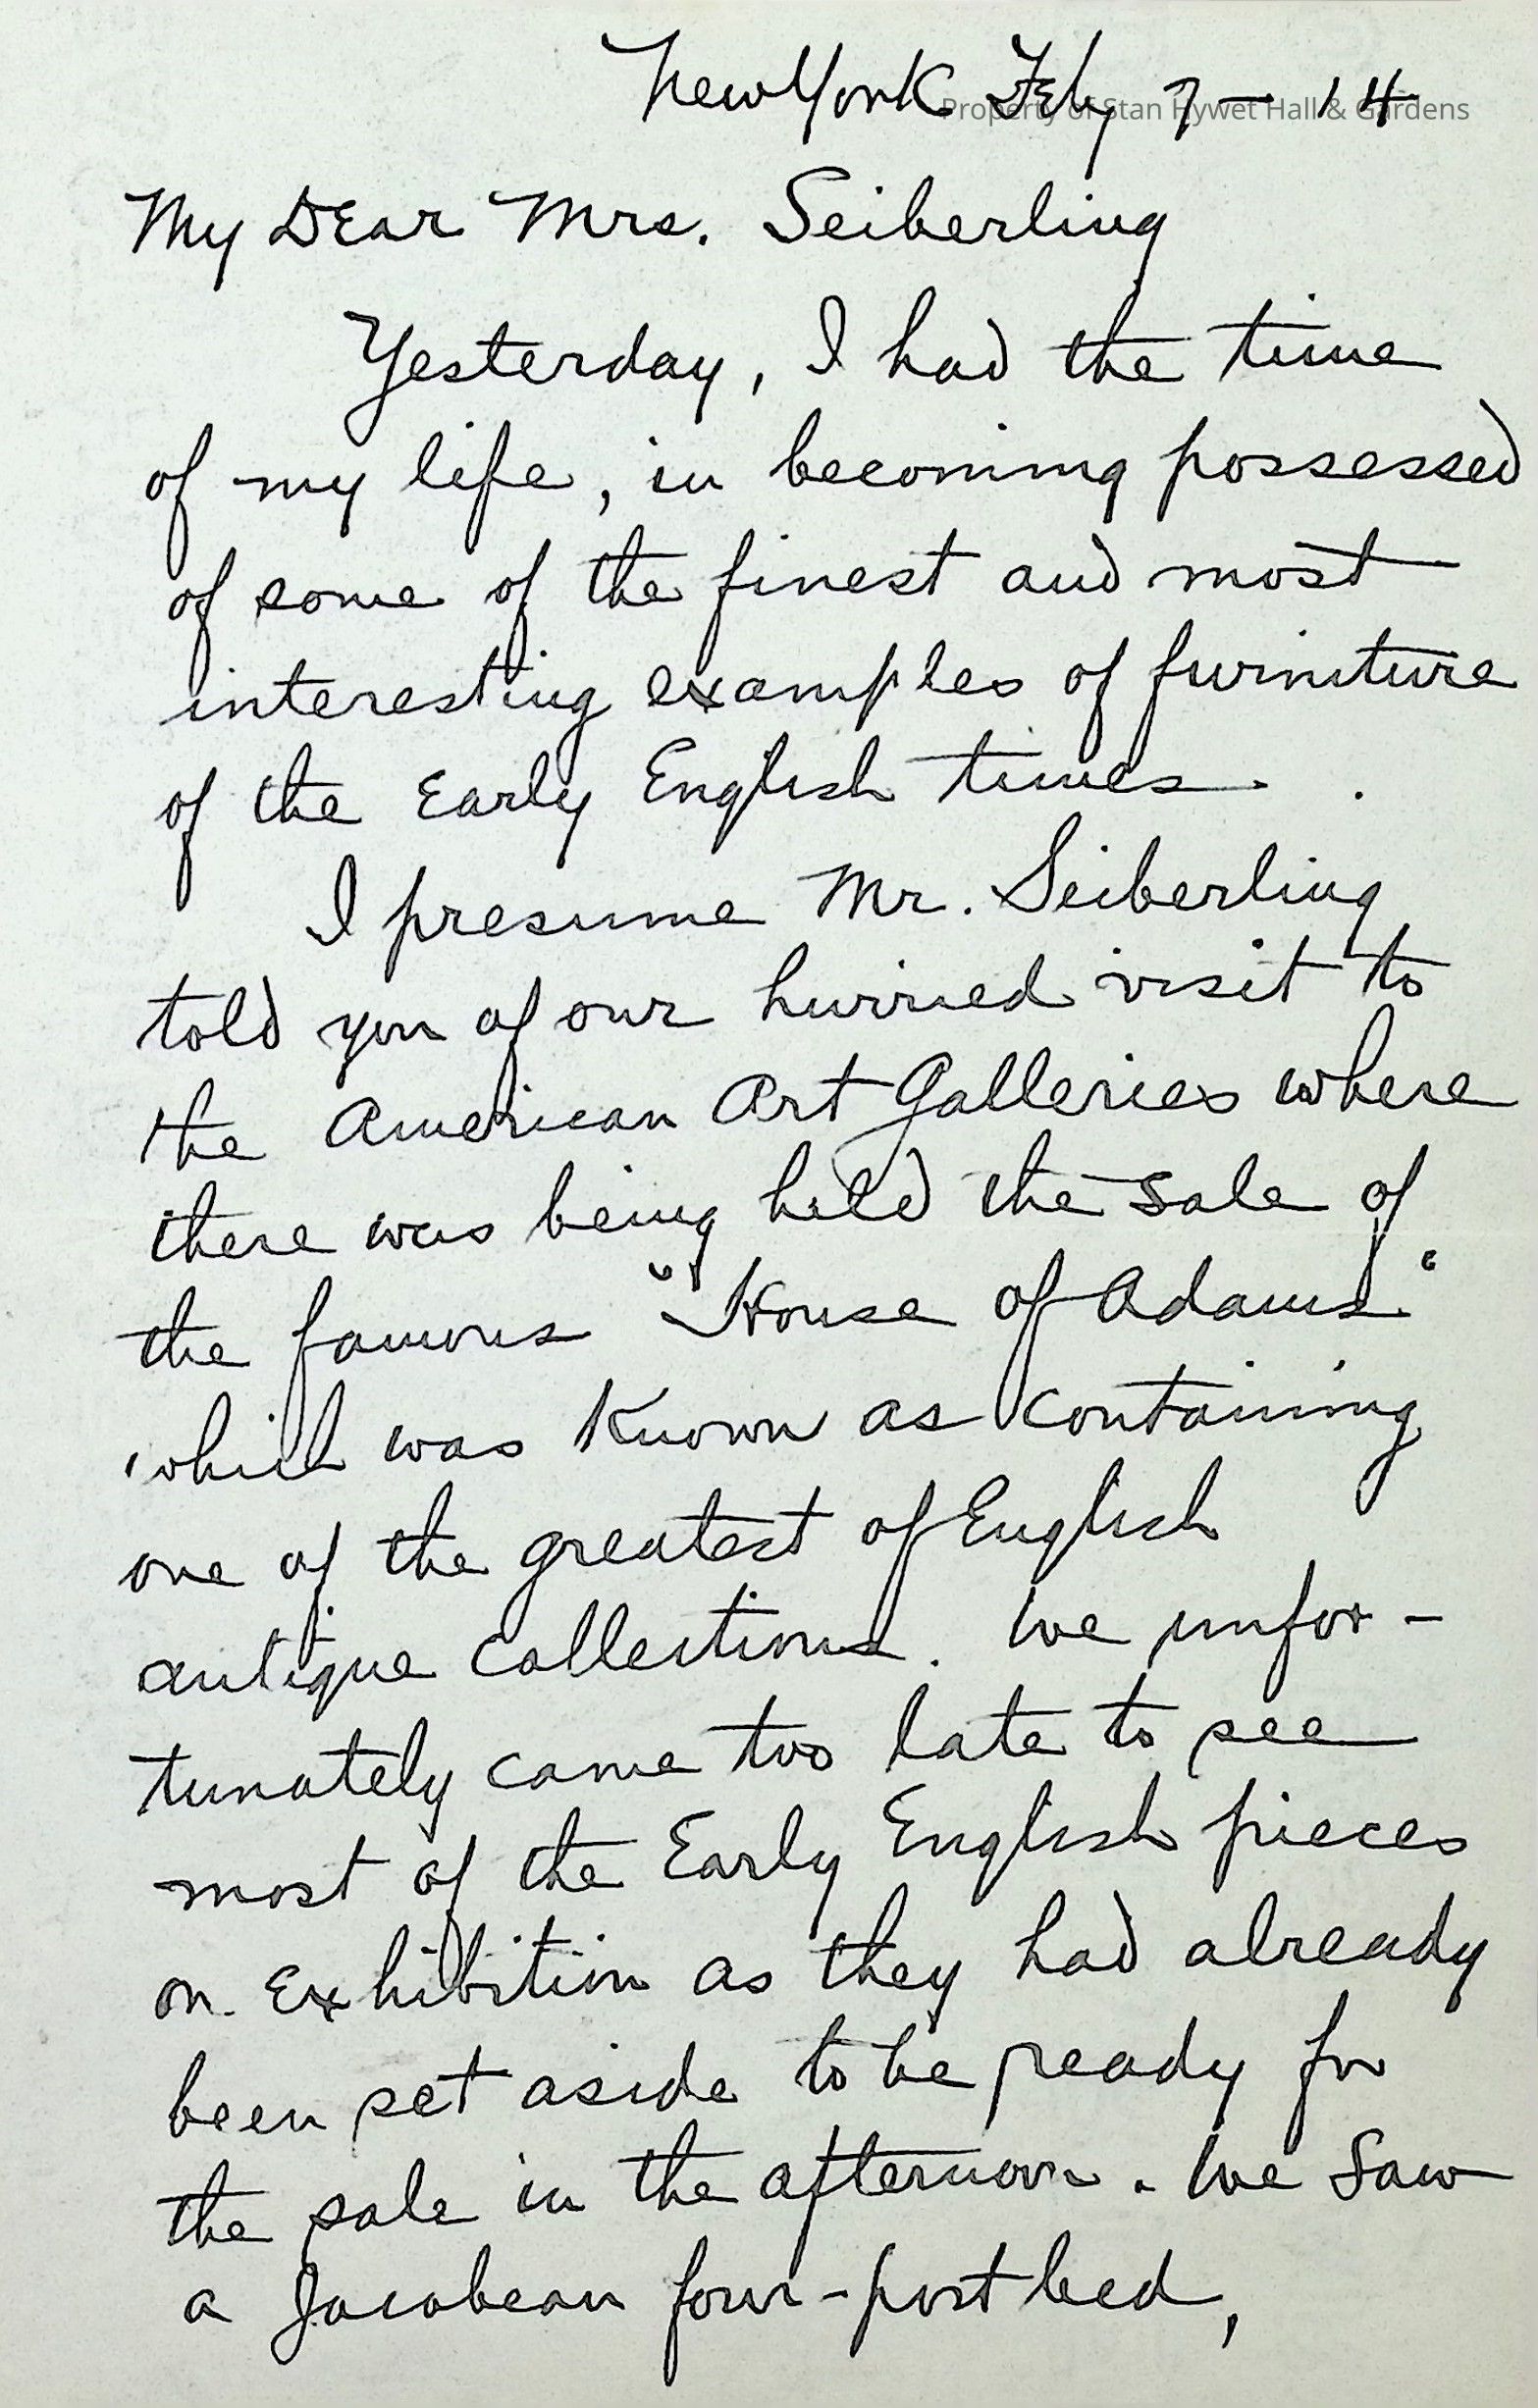 New York Feby 7 - 14
Property of Stan Hywet Hall & Gardens
My Dear Mrs. Seiberling
Yesterday, I had the time
of my life, in becoming possessed
of some of the finest and most
interesting examples of furniture
of the Early English times.
I presume Mr. Seiberling
told you of our hurried visit to
the American Art Galleries where
there was being held the sale of
the famous "House of Adams"
which was Known as containing
one of the greatest of English
antique collections. We unfor-
tunately came too late to see
most of the Early English pieces
on Exhibition as they had already
been set aside to be ready for
the sale in the afternoon. We Saw
a Jacobean four-post bed,